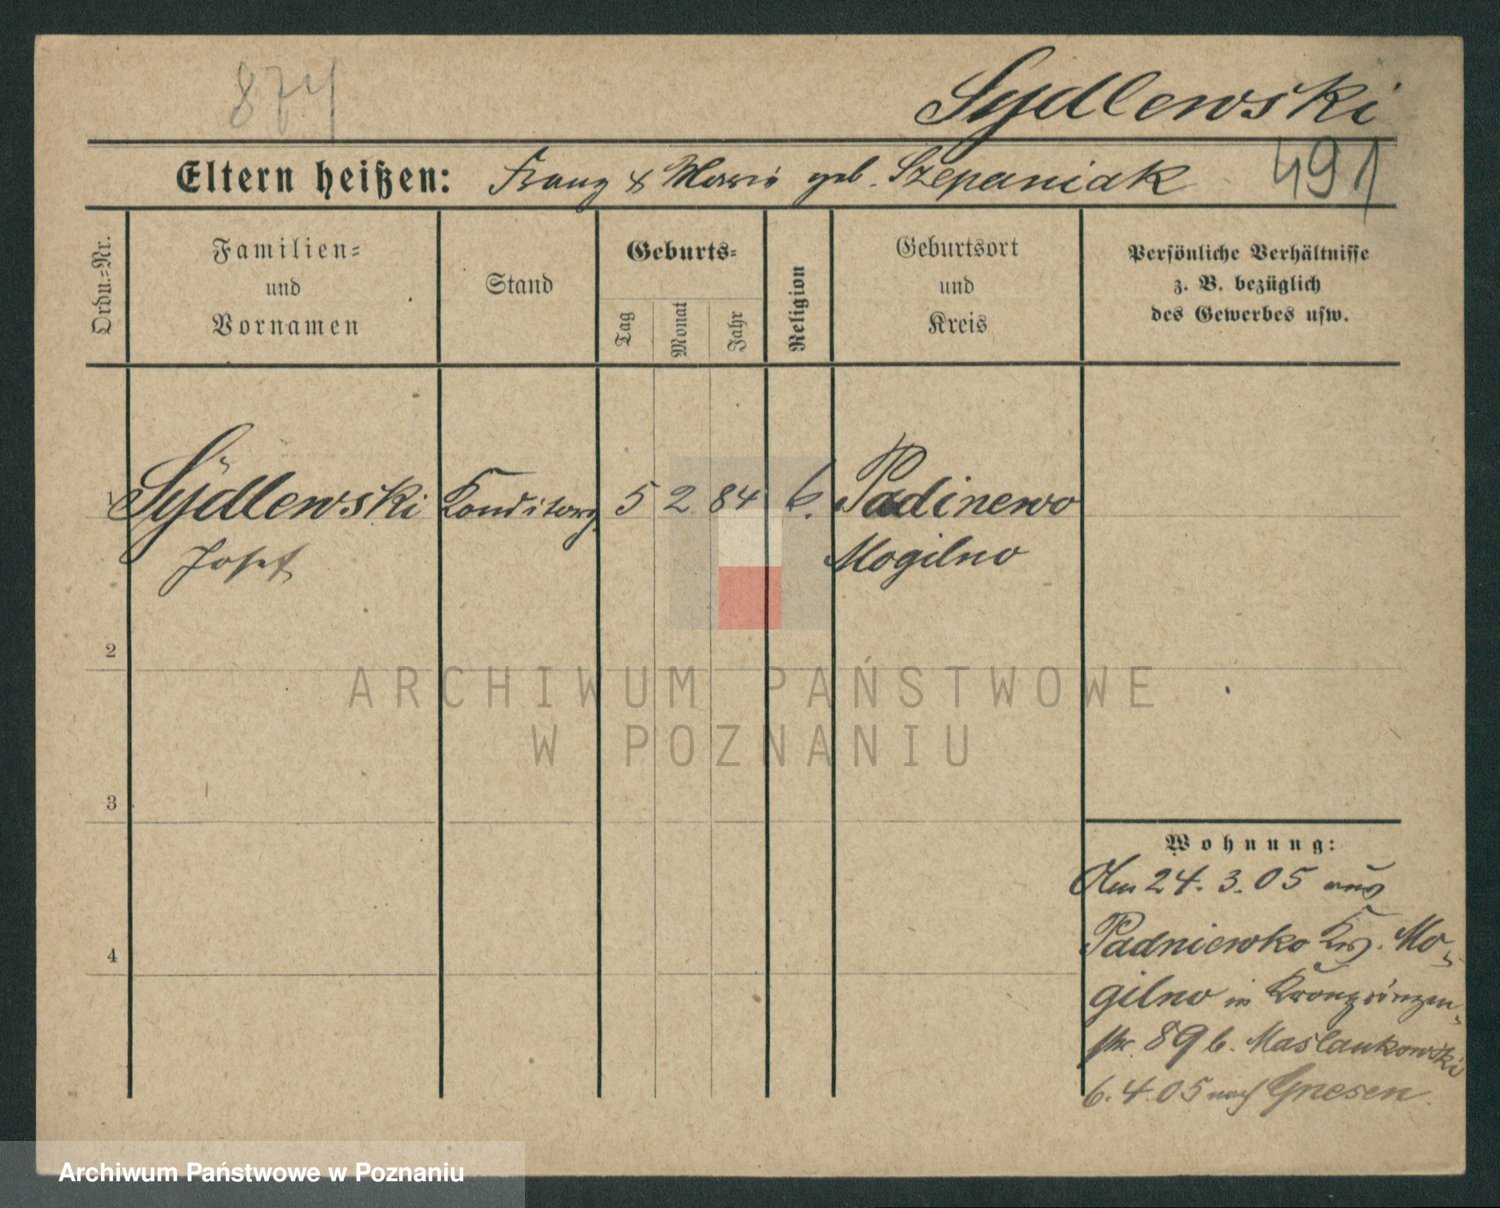 874
Sydlewski
Eltern heißen: Franz & Marie geb. Szepaniak
491
Ordn.=Nr.
Familien=
und
Vornamen
Stand
Geburts=
Tag
Monat
Jahr
Religion
Geburtsort
und
Kreis
Persönliche Verhältnisse
z. B. bezüglich
des Gewerbes usw.
1 Sydlewski Konditorg. 5 2 84 k. Padinewo
Josef Mogilno
2
ARCHIWUM PAŃSTWOWE
W POZNANIU
3
Wohnung:
Am 24. 3. 05 aus
Padniewko Krs. Mo-
gilno in Kronprinzen-
str. 89 b. Maslankowski
6. 4. 05 nach Gnesen.
4
Archiwum Państwowe w Poznaniu